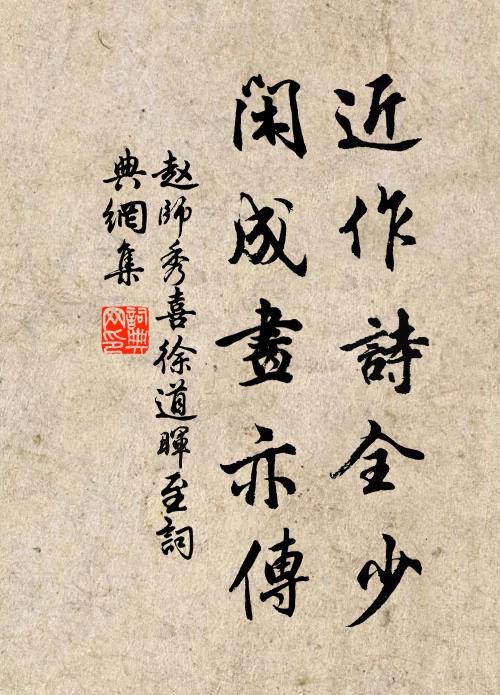 近作詩全少
閑成畫亦傳
赵師秀喜徐道暉至詞
典網集
詞典
网印